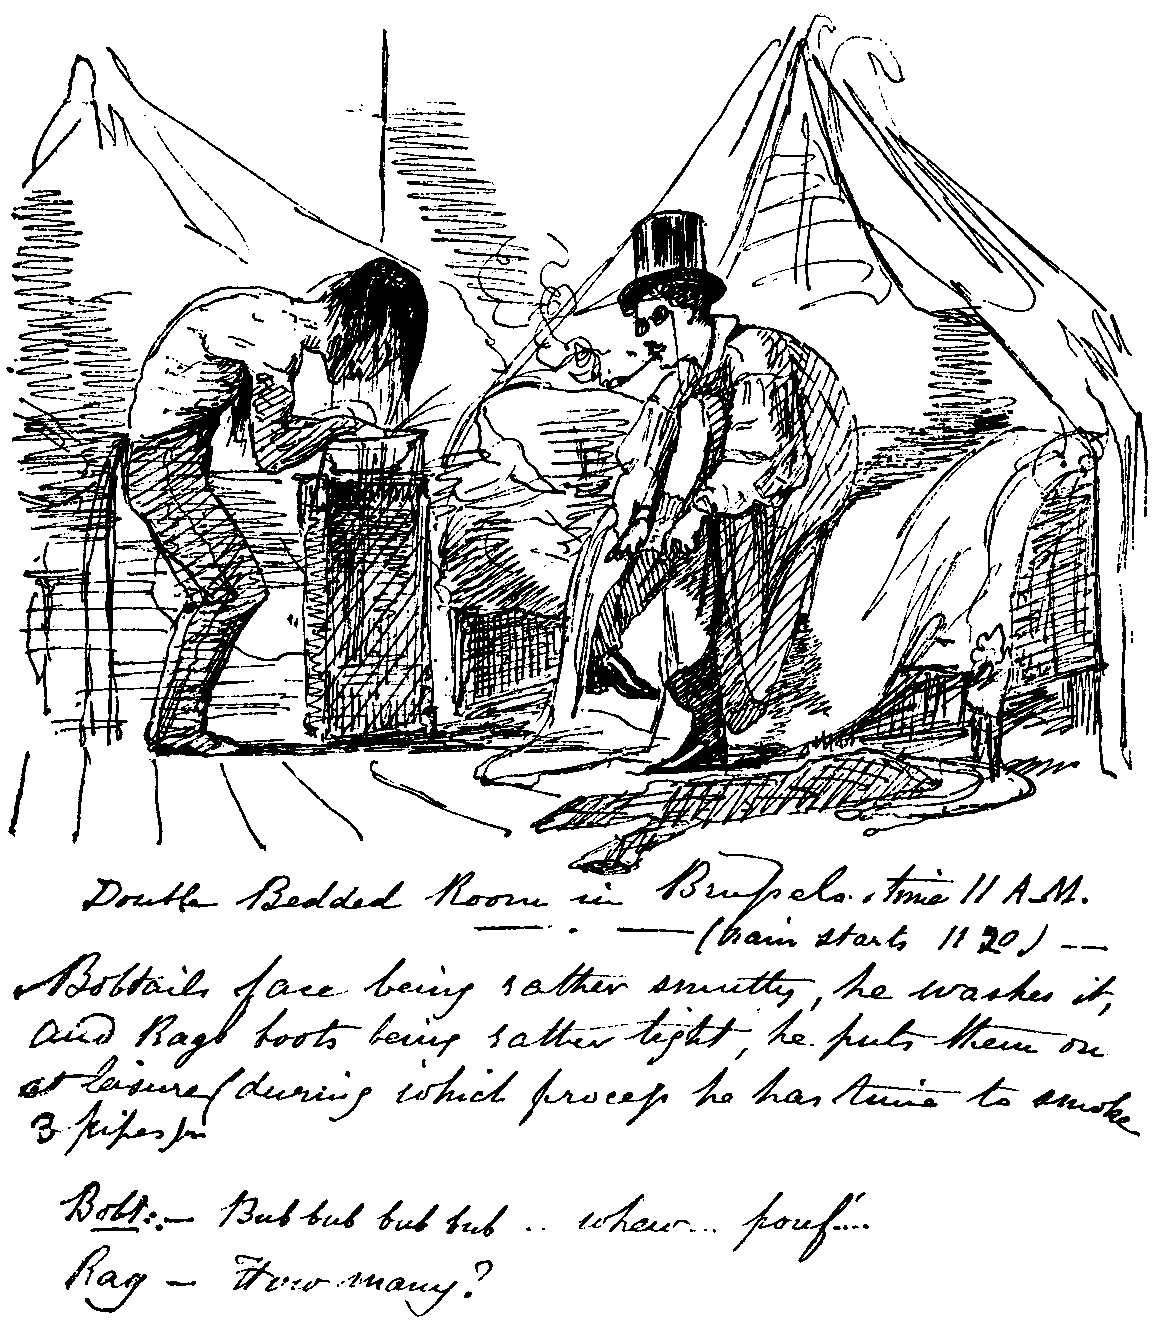 Double Bedded Room in Brussels. time 11 A.M.
(train starts 11 20) —
Bobtails face being rather smutty, he washes it,
and Rags boots being rather tight, he puts them on
at leisure (during which process he has time to smoke
3 pipes)
Bobt:— Bub bub bub bub .. whew... pouf...
Rag — How many?